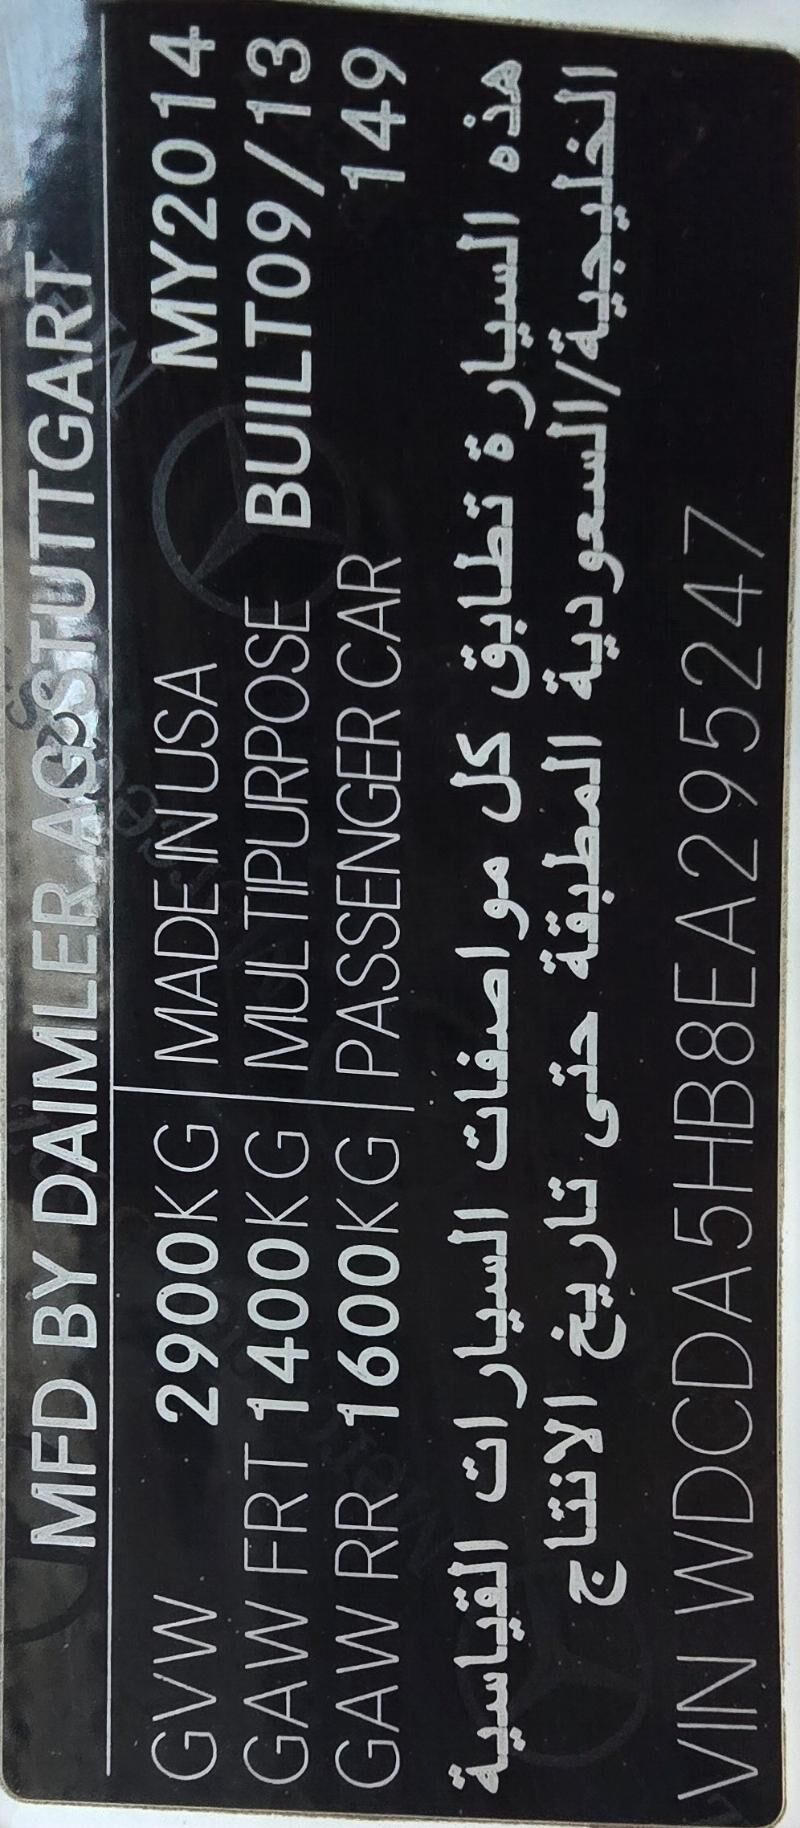 MFD BY DAIMLER AG STUTTGART
GVW 2900KG MADE IN USA MY2014
GAW FRT 1400KG MULTIPURPOSE BUILT09/13
GAW RR 1600KG PASSENGER CAR 149
هذه السيارة تطابق كل مواصفات السيارات القياسية
الخليجية/السعودية المطبقة حتى تاريخ الانتاج
VIN WDCDA5HB8EA295247